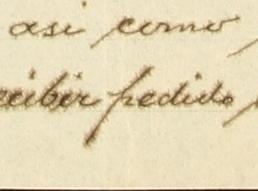 asi como
recibir pedido